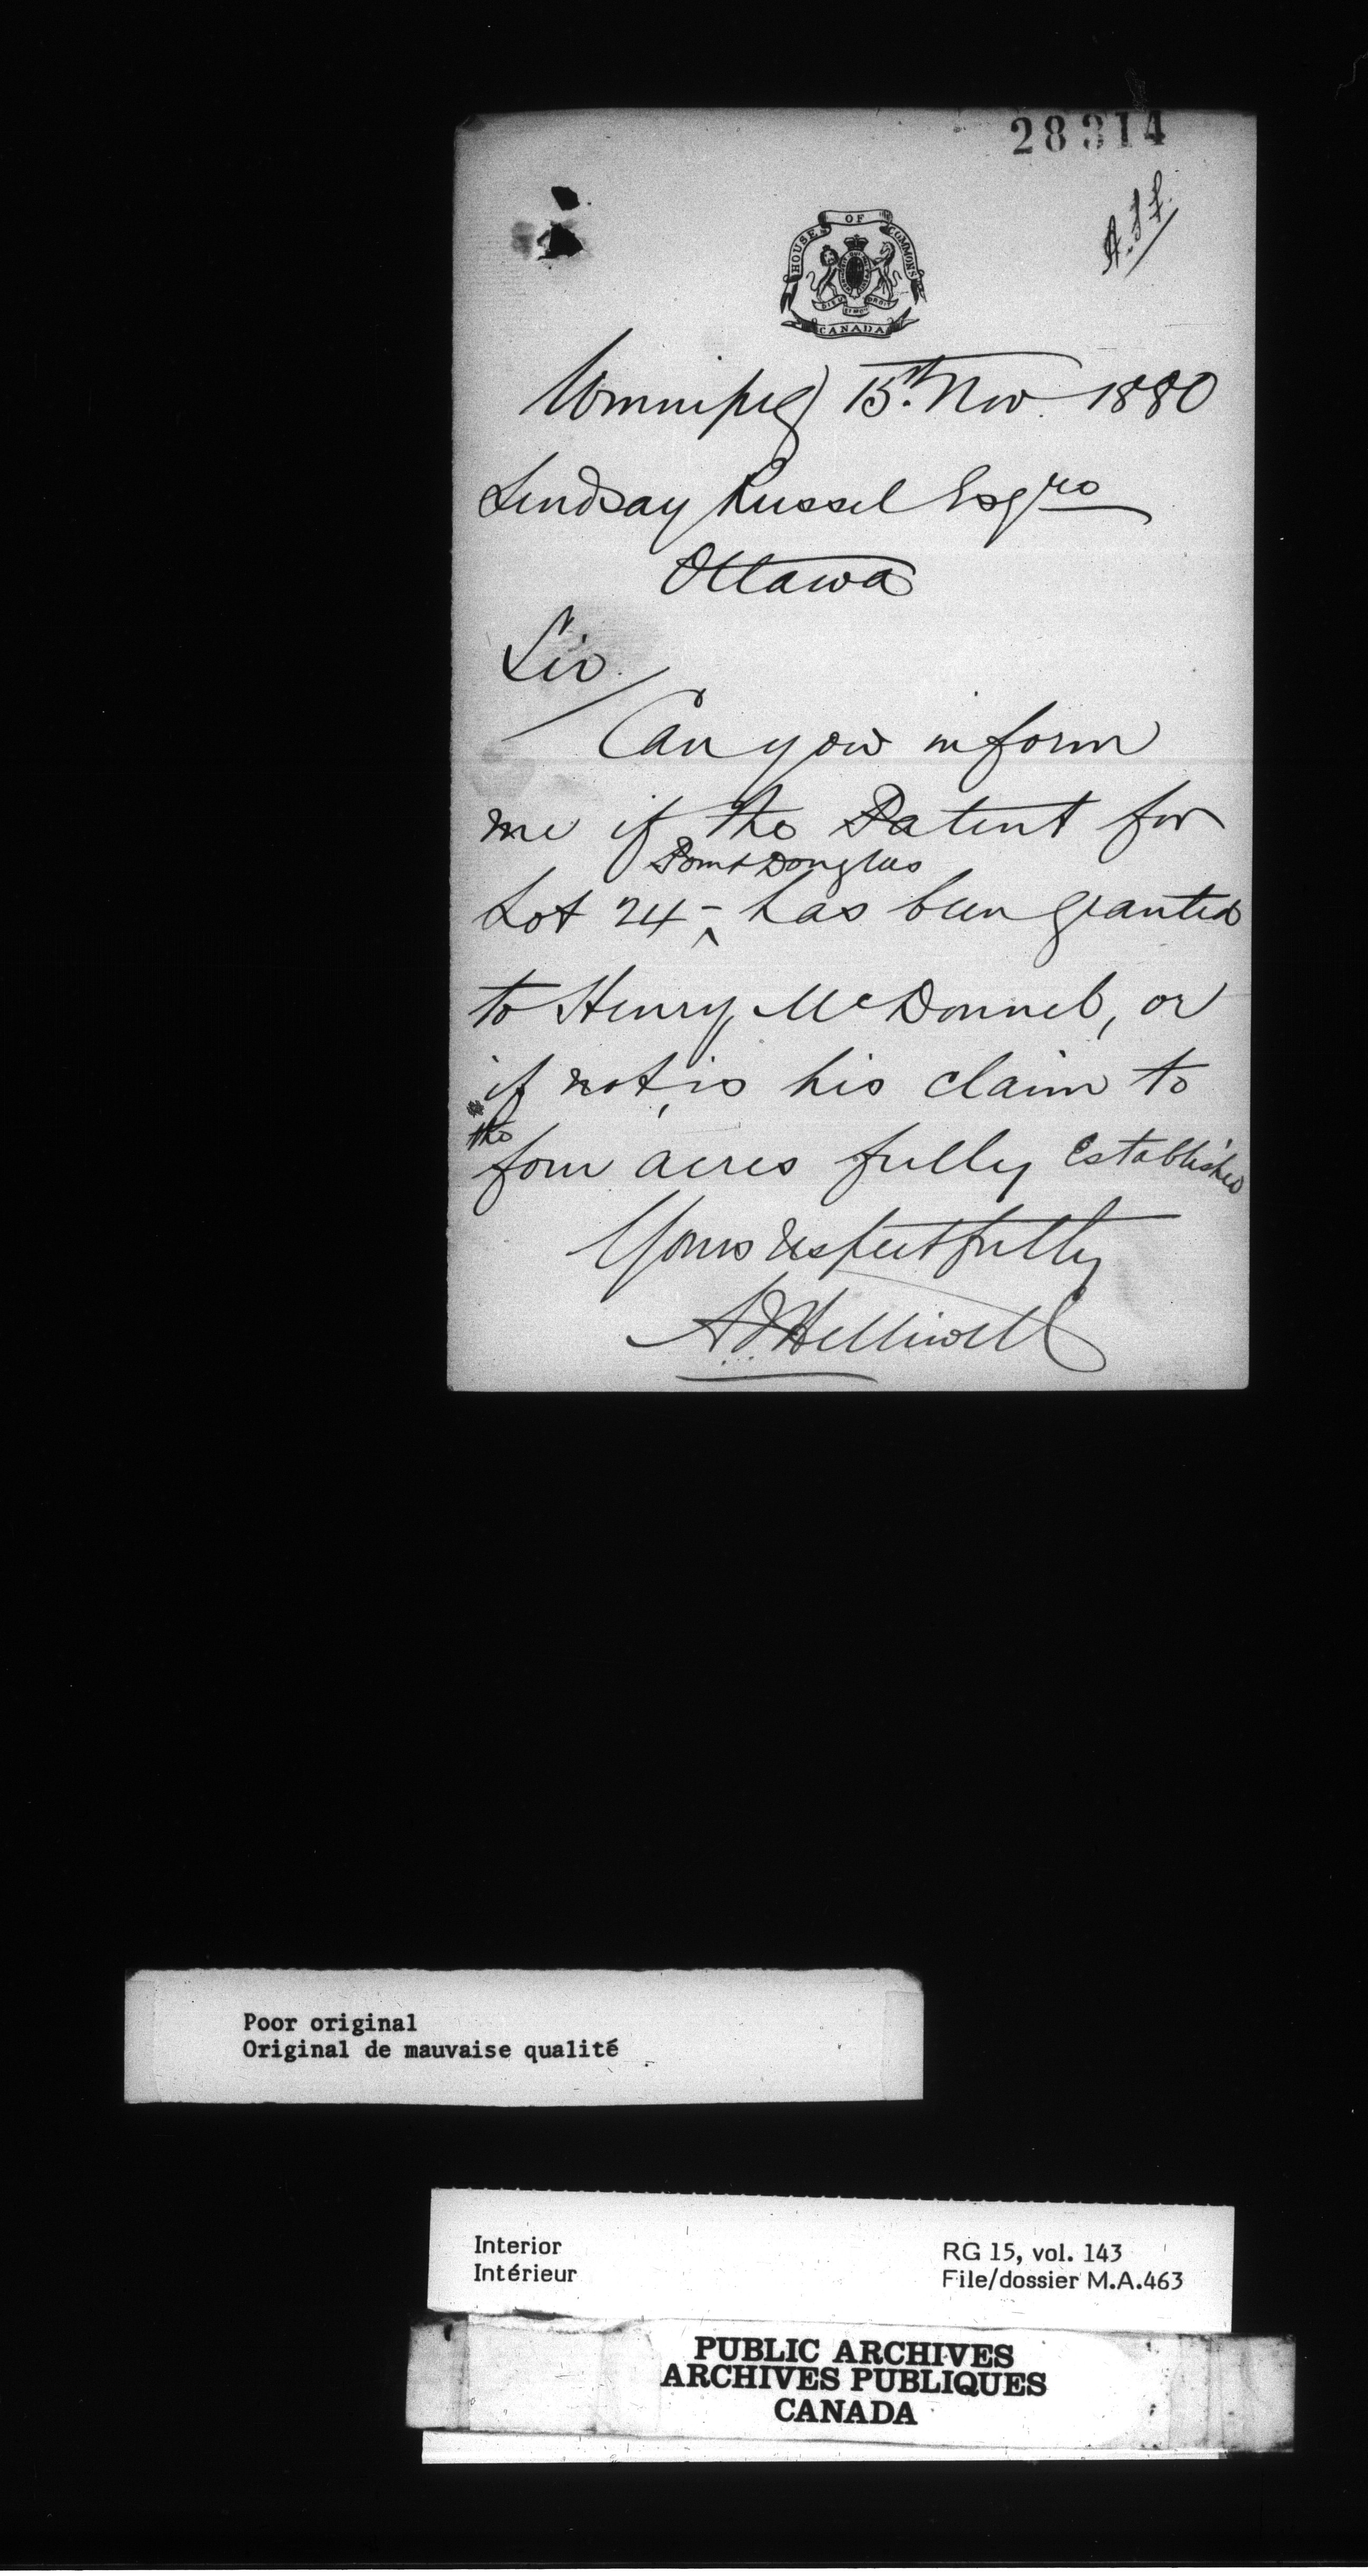 28314
HOUSE OF COMMONS
CANADA
Winnipeg 15th Nov. 1880
Lindsay Russel Esqre
Ottawa
Sir
Can you inform
me if the Patent for
Point Douglas
Lot 24 - ^ has been granted
to Henry McDonnel, or
if not, is his claim to
the
four acres fully established
Yours respectfully
Helliwell
Poor original
Original de mauvaise qualité
Interior
Intérieur
RG 15, vol. 143
File/dossier M.A.463
PUBLIC ARCHIVES
ARCHIVES PUBLIQUES
CANADA